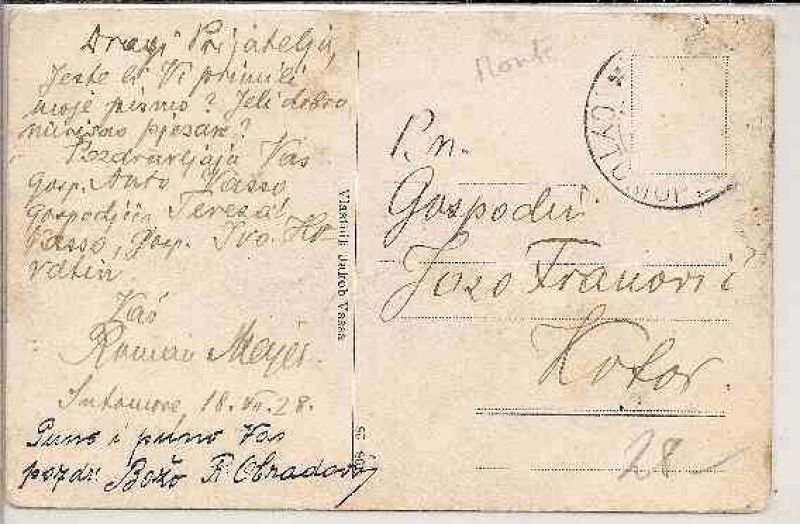 Dragi Prijatelju,
Jeste li Vi primili
moje pismo? Jeli dobro
pjezak?
Pozdravljaju Vas
Gosp. Anto Vasso
Gospodjića Teresa
Vasso, Gosp. Ivo
Vaš
Roman Majer.
Sutomore, 18. VII. 28.
Puno i puno Vas
pozdr. Božo R. Obradović
Vlastnik Jakob Vassa
Monte
P. n.
Gospodin
Jozo Franović
Kotor.
28